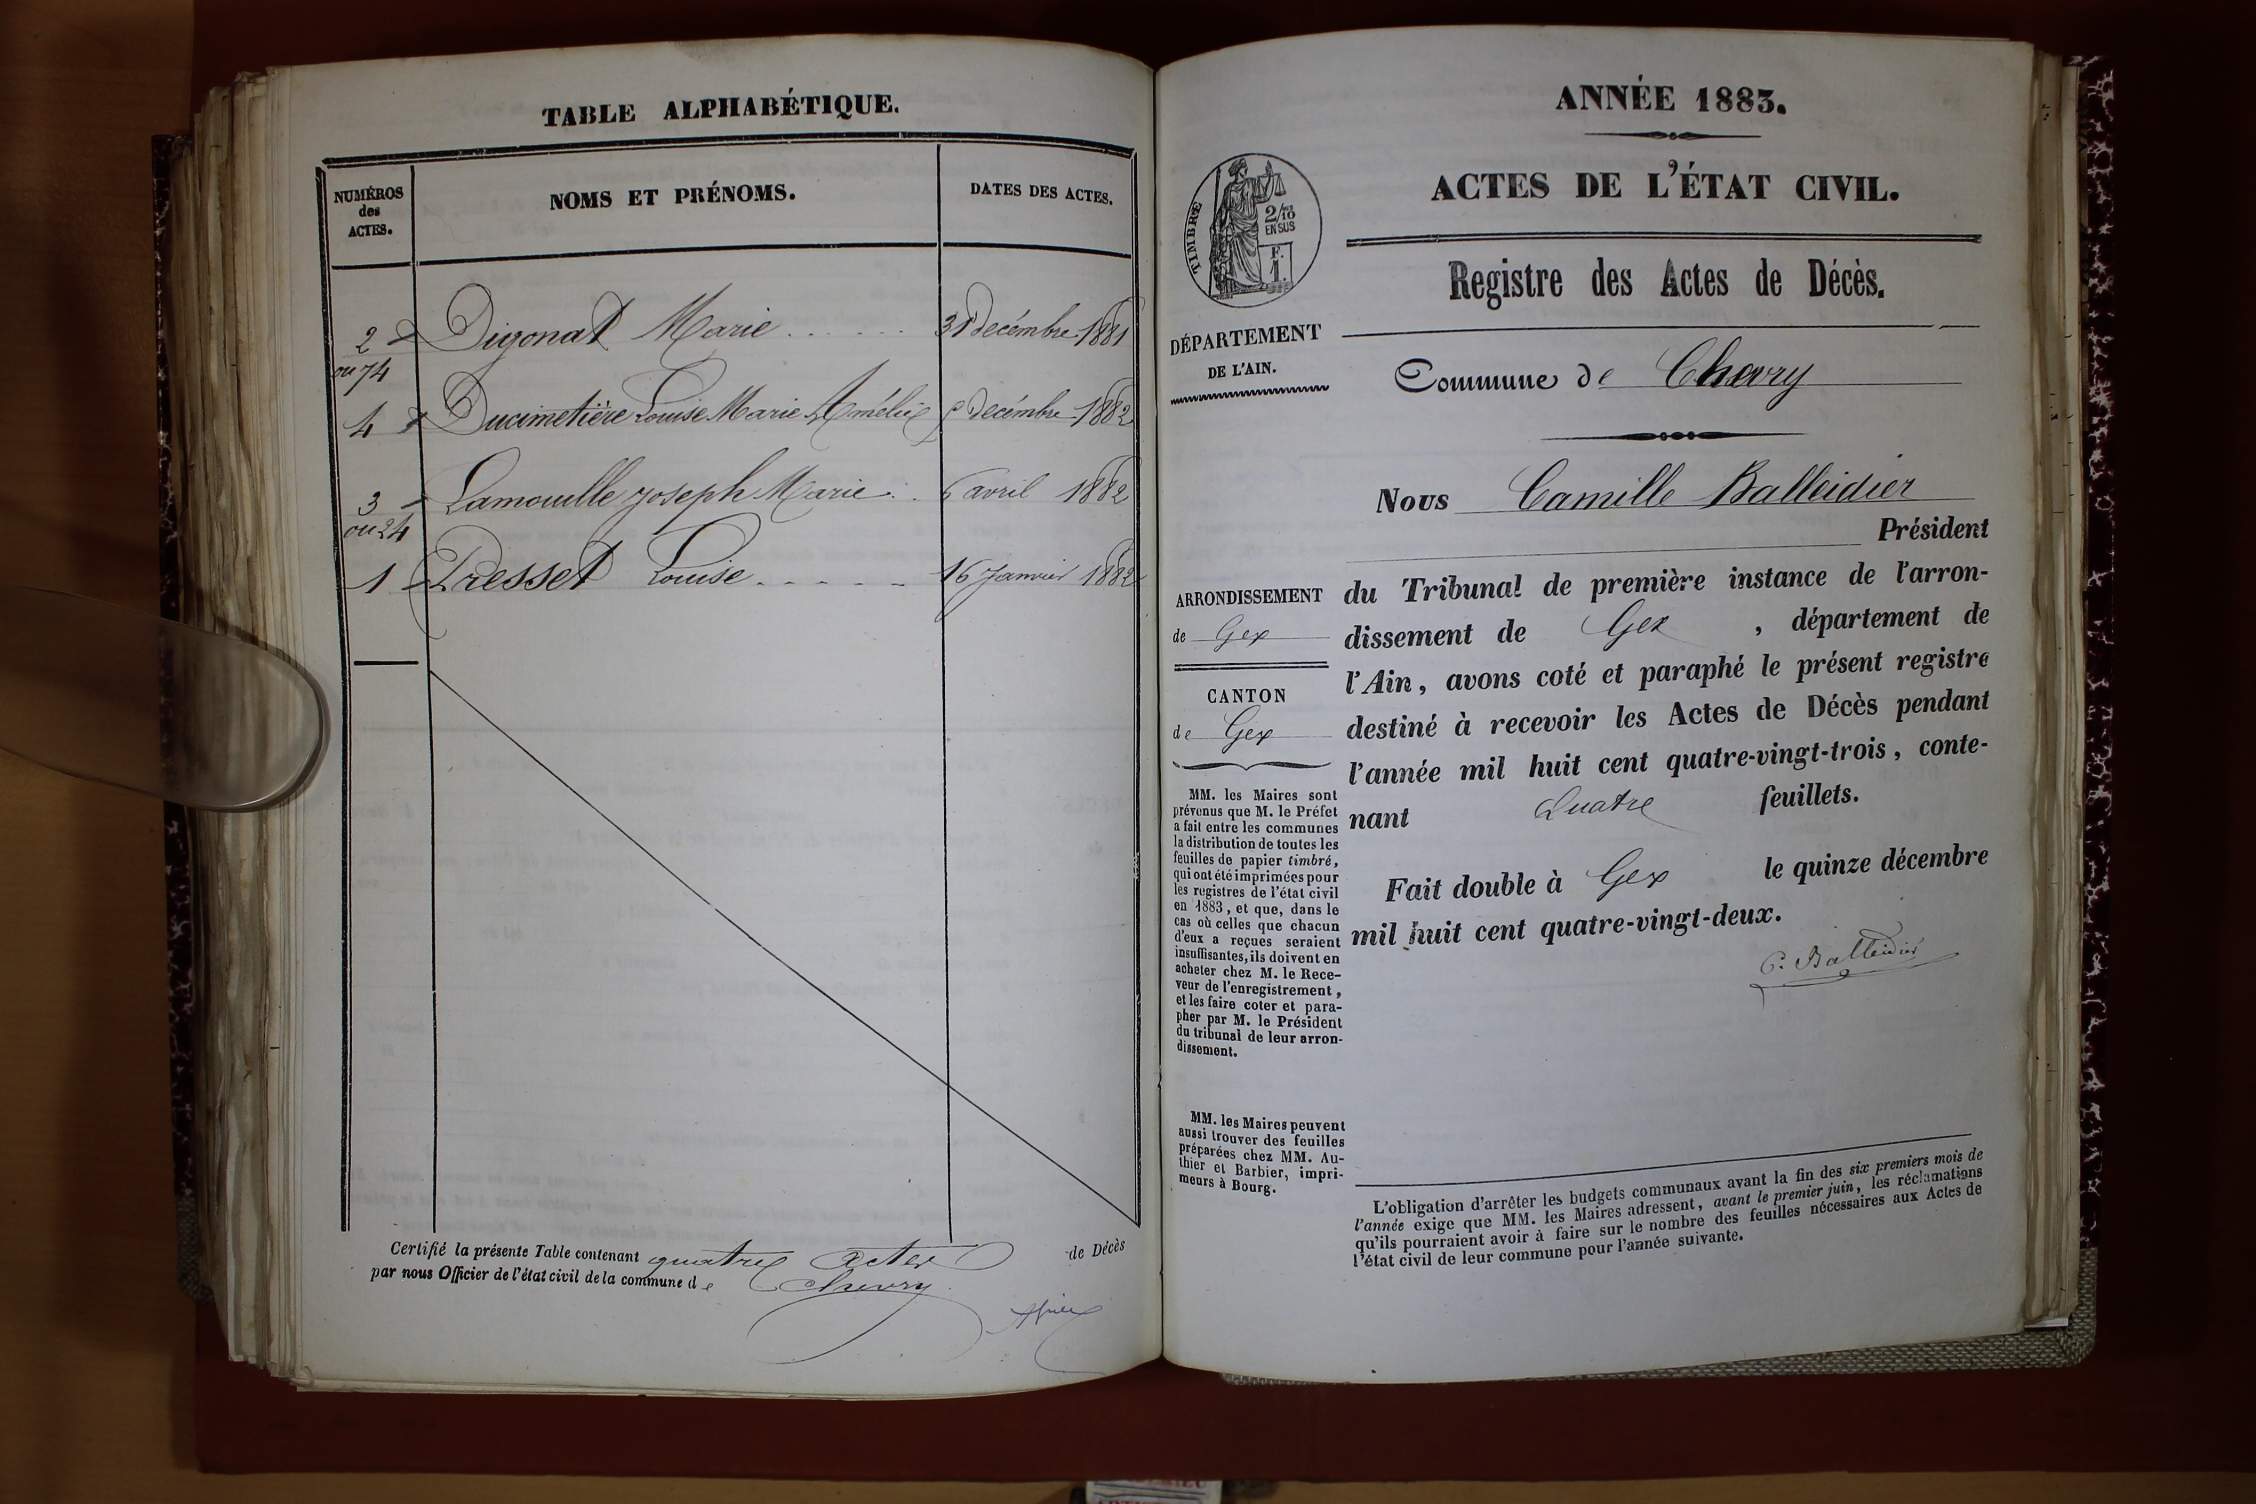 TABLE ALPHABÉTIQUE.
NUMÉROS
des
ACTES.
NOMS ET PRÉNOMS.
DATES DES ACTES.
2 Digonat Marie 31 décembre 1881
ou 74
4 Ducimetière Louise Marie Amélie décembre 1882
3 Lamouille Joseph Marie 6 avril 1882
ou 24
1 Presset Louise 16 Janvier 1882
Certifié la présente Table contenant quatre actes de Décès
par nous Officier de l'état civil de la commune de Chevry
ANNÉE 1883.
ACTES DE L'ÉTAT CIVIL.
TIMBRE
2/10
EN SUS
F.
1.
Registre des Actes de Décès.
DÉPARTEMENT
DE L'AIN.
Commune de Chevry
Nous Camille Balleidier
Président
ARRONDISSEMENT
de Gex
CANTON
de Gex
du Tribunal de première instance de l'arron-
dissement de Gex, département de
l'Ain, avons coté et paraphé le présent registre
destiné à recevoir les Actes de Décès pendant
l'année mil huit cent quatre-vingt-trois, conte-
nant Quatre feuillets.
Fait double à Gex le quinze décembre
mil huit cent quatre-vingt-deux.
C. Balleidier
MM. les Maires sont
prévenus que M. le Préfet
a fait entre les communes
la distribution de toutes les
feuilles de papier timbré,
qui ont été imprimées pour
les registres de l'état civil
en 1883, et que, dans le
cas où celles que chacun
d'eux a reçues seraient
insuffisantes, ils doivent en
acheter chez M. le Rece-
veur de l'enregistrement,
et les faire coter et para-
pher par M. le Président
du tribunal de leur arron-
dissement.
MM. les Maires peuvent
aussi trouver des feuilles
préparées chez MM. Au-
thier et Barbier, impri-
meurs à Bourg.
L'obligation d'arrêter les budgets communaux avant la fin des six premiers mois de
l'année exige que MM. les Maires adressent, avant le premier juin, les réclamations
qu'ils pourraient avoir à faire sur le nombre des feuilles nécessaires aux Actes de
l'état civil de leur commune pour l'année suivante.